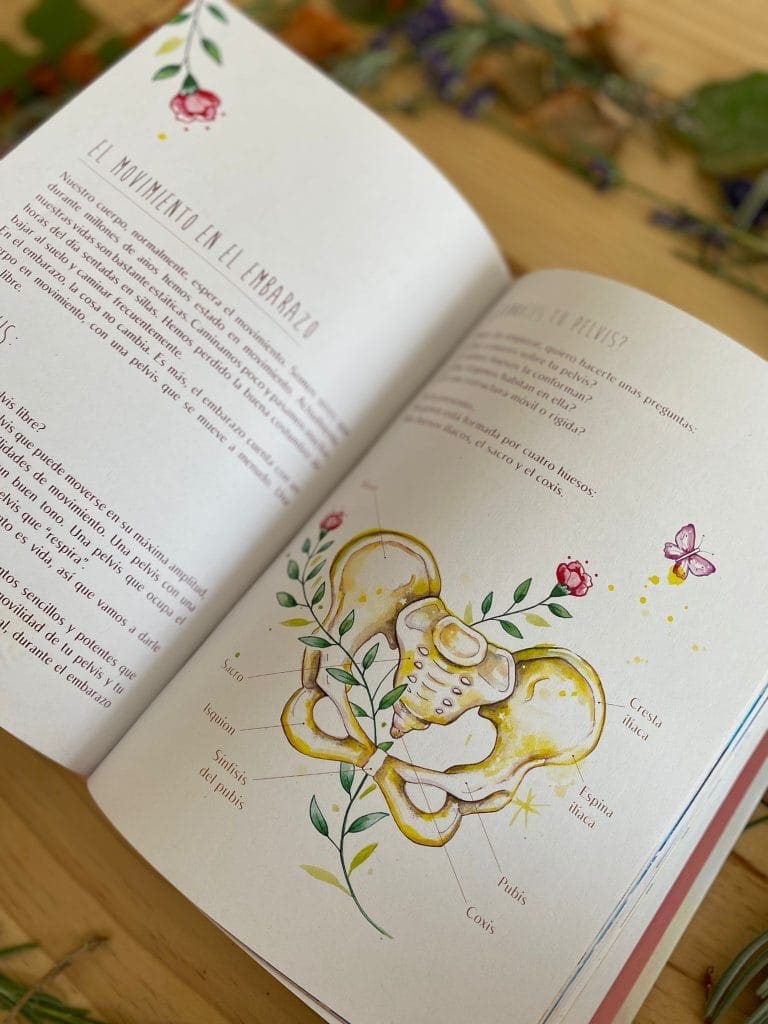 EL MOVIMIENTO EN EL EMBARAZO
Nuestro cuerpo, normalmente, espera el movimiento. Somos
durante millones de años hemos estado en movimiento.
nuestras vidas son bastante estáticas. Caminamos poco y pasamos
horas del día sentadas en sillas. Hemos perdido la buena costumbre de
bajar al suelo y caminar frecuentemente.
En el embarazo, la cosa no cambia. Es más, el embarazo cuenta con
en movimiento, con una pelvis que se mueve a menudo. Una
libre.
libre?
que puede moverse en su máxima amplitud,
de movimiento. Una pelvis con una
un buen tono. Una pelvis que ocupa el
que "respira".
es vida, así que vamos a darle
sencillos y potentes que
movilidad de tu pelvis y tu
durante el embarazo
TU PELVIS?
quiero hacerte unas preguntas:
sobre tu pelvis?
huesos la conforman?
habitan en ella?
estructura móvil o rígida?
está formada por cuatro huesos:
huesos ilíacos, el sacro y el coxis.
Sacro
Isquion
Sínfisis
del pubis
Cresta
ilíaca
Espina
ilíaca
Pubis
Coxis